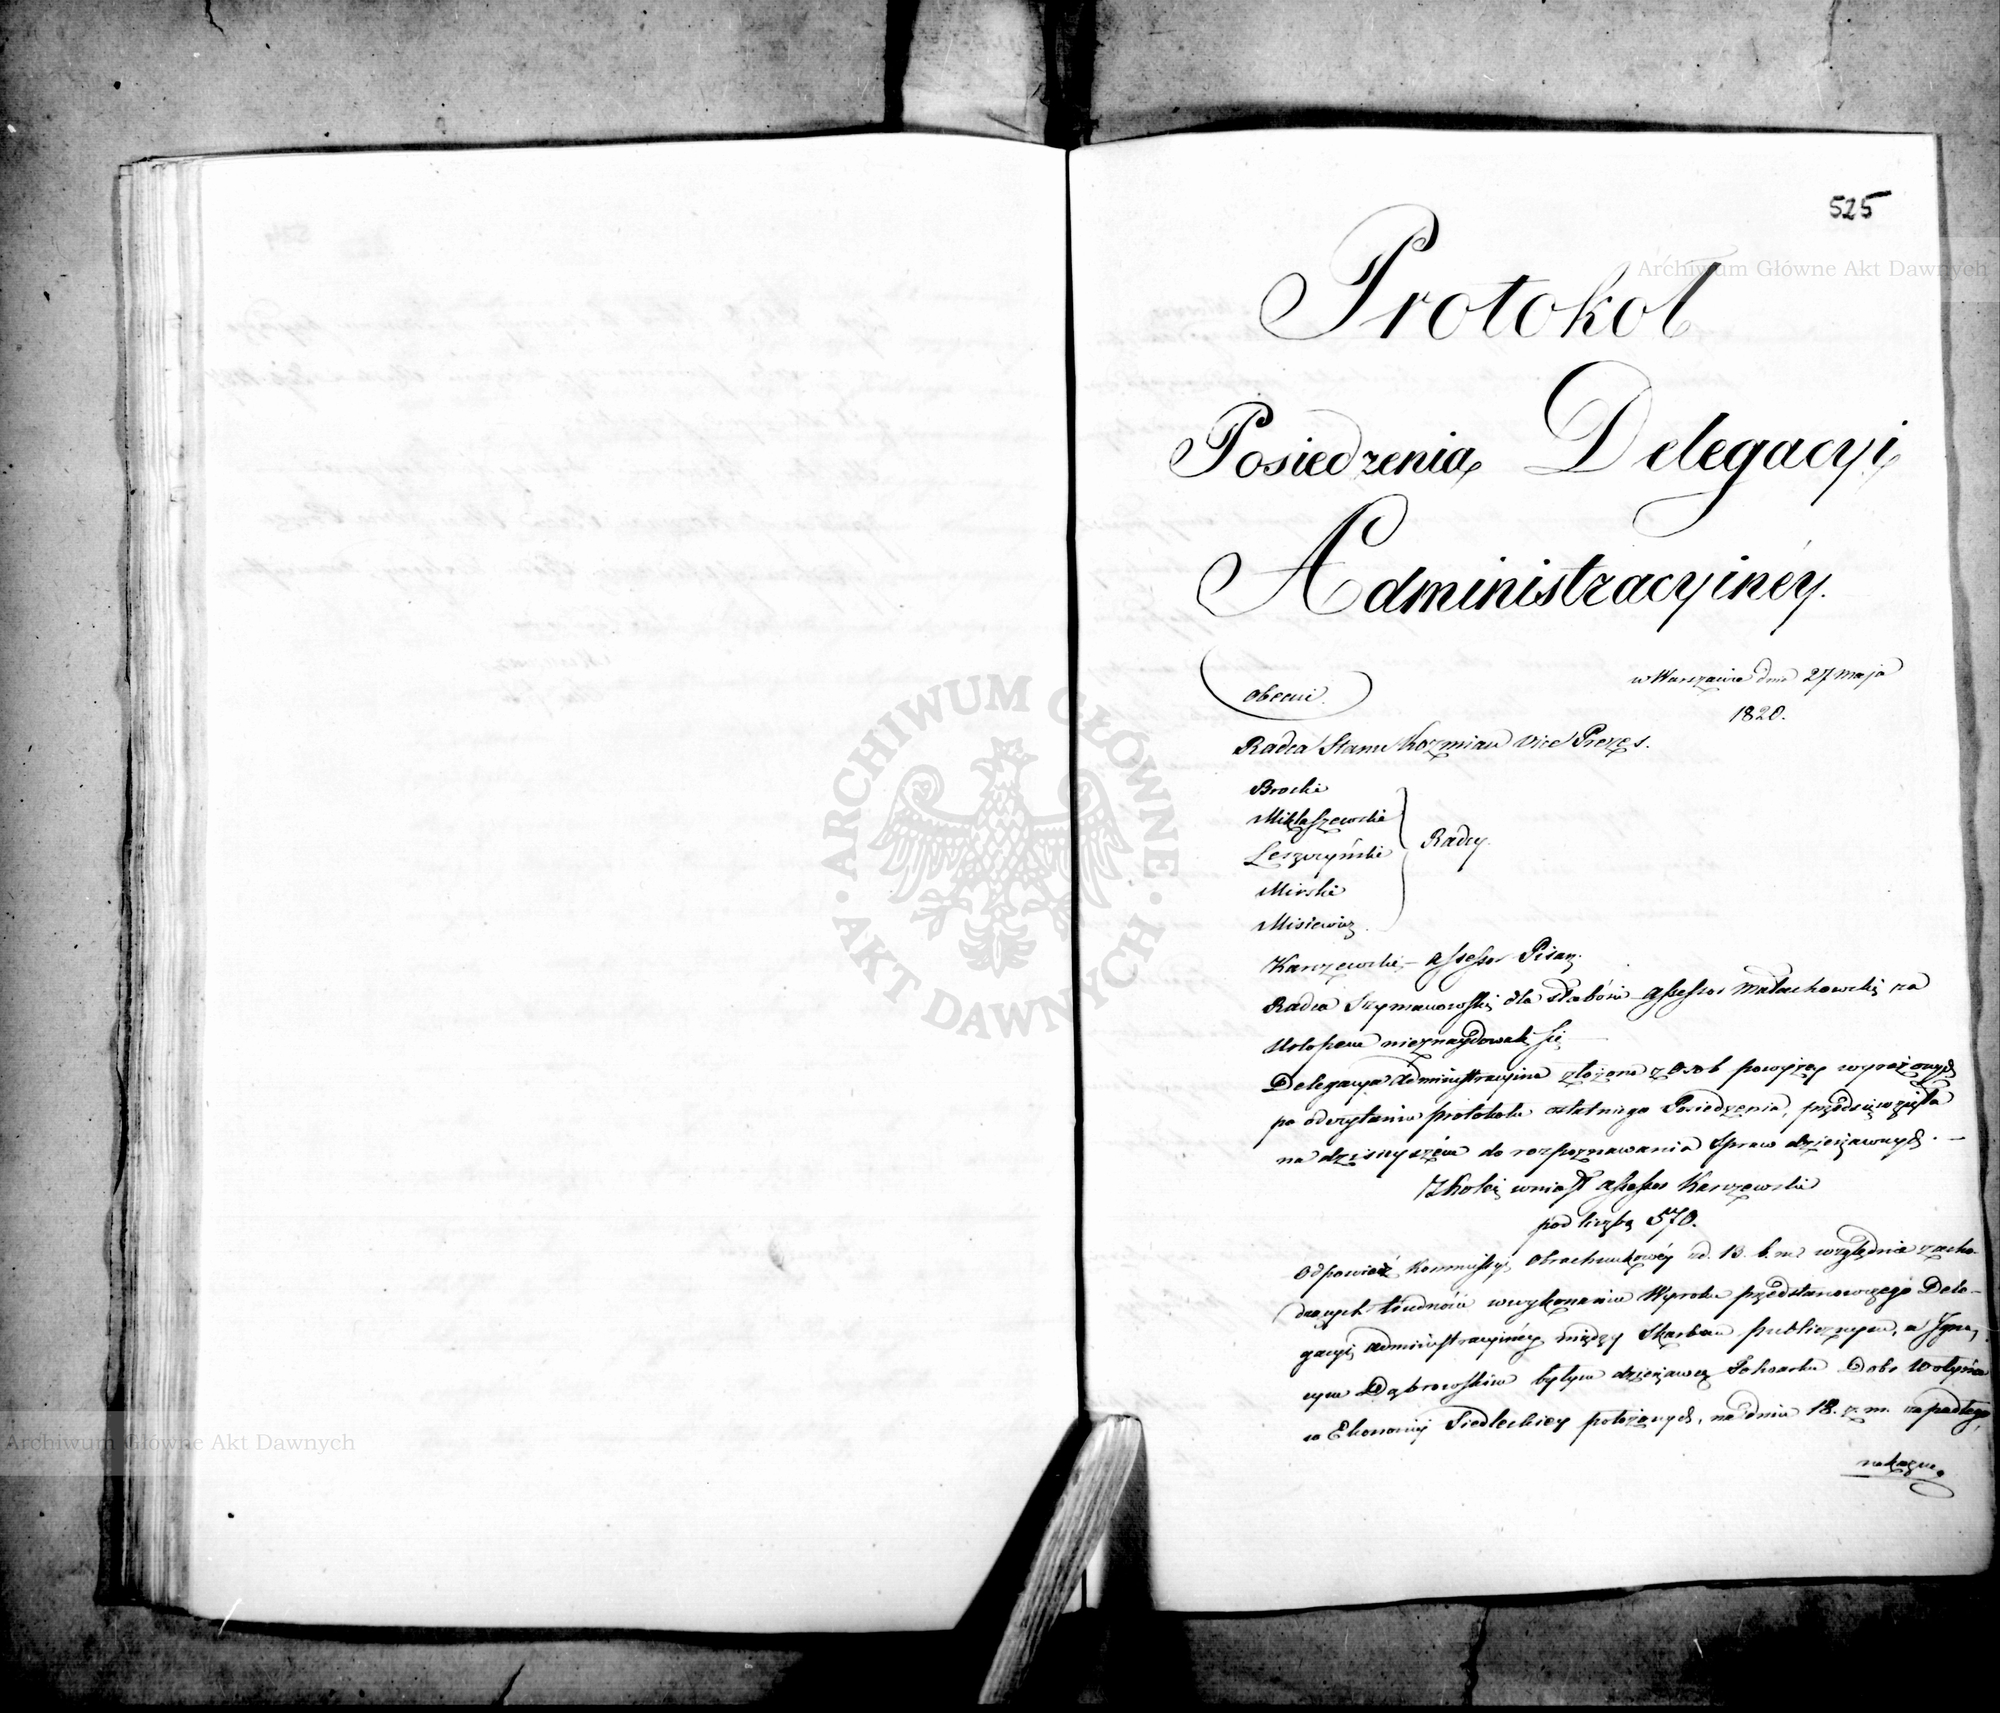 525
Protokół
Posiedzenia Delegacyi
Administracyiney.
w Warszawie dnia 27 maja
1820.
obecni.
Radca Stanu Kozmian Vice Prezes.
Brocki
Miklaszewski
Leszczyński
Mirski
Misiewicz
Radcy.
Karczewski – Assessor Pisarz.
Radca Szymanowski dla słabości Assessor Małachowski za
Urlopem nieznaydowali się
Delegacya Administracyina złożona z Osob powyżey wyrażonych
po odczytaniu protokołu ostatniego Posiedzenia, przedsięwzięła
na dzisieyszém do rozpoznawania Spraw dzierżawnych. –
Z kolei wniosł Assessor Karczewski
pod liczbą 570.
Odpowiedź Kommissyi Obrachunkowéy z d. 13. b. m. względnie zacho-
dzących trudności w wykonaniu Wyroku przedstanowczego Dele-
gacyi Administracyiney między Skarbem publicznym, a Igna-
cym Dąbrowskim byłym dzierżawcą Folwarku Dobr Wołyńce
w Ekonomii Siedleckiey położonych, na dniu 18. z. m. zapadłego,
nakazuie
Archiwum Główne Akt Dawnych
ARCHIWUM GŁÓWNE AKT DAWNYCH
Archiwum Główne Akt Dawnych